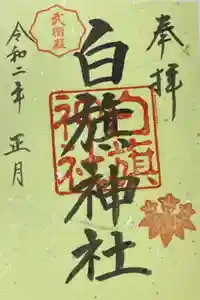 奉拝
白旗神社
令和二年 正月
武衛殿
白旗神社